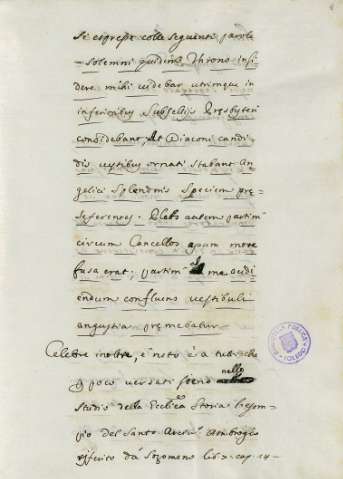 si espresse colle seguenti parole
Solemni quidem Throno insi=
dere mihi videbar utrimque in
inferioribus Subselijs Presbyteri
considebant, At Diaconi candi
dis vestibus ornati stabant An
gelici Splendoris Speciem prę=
seferentes. Plebs autem partim
circum Cancellos apum more
fusa erat; partim me audi
endum confluens vestibuli
angustia premebatur
Celebre inoltre, e noto è a tutti che
poco versati sieno nello
Studio della Ecclica Storia l'esem=
pio del Santo Arciv. Ambrogio
riferito da Sozomeno lib. cap.
BIBLIOTECA PUBLICA
TOLEDO